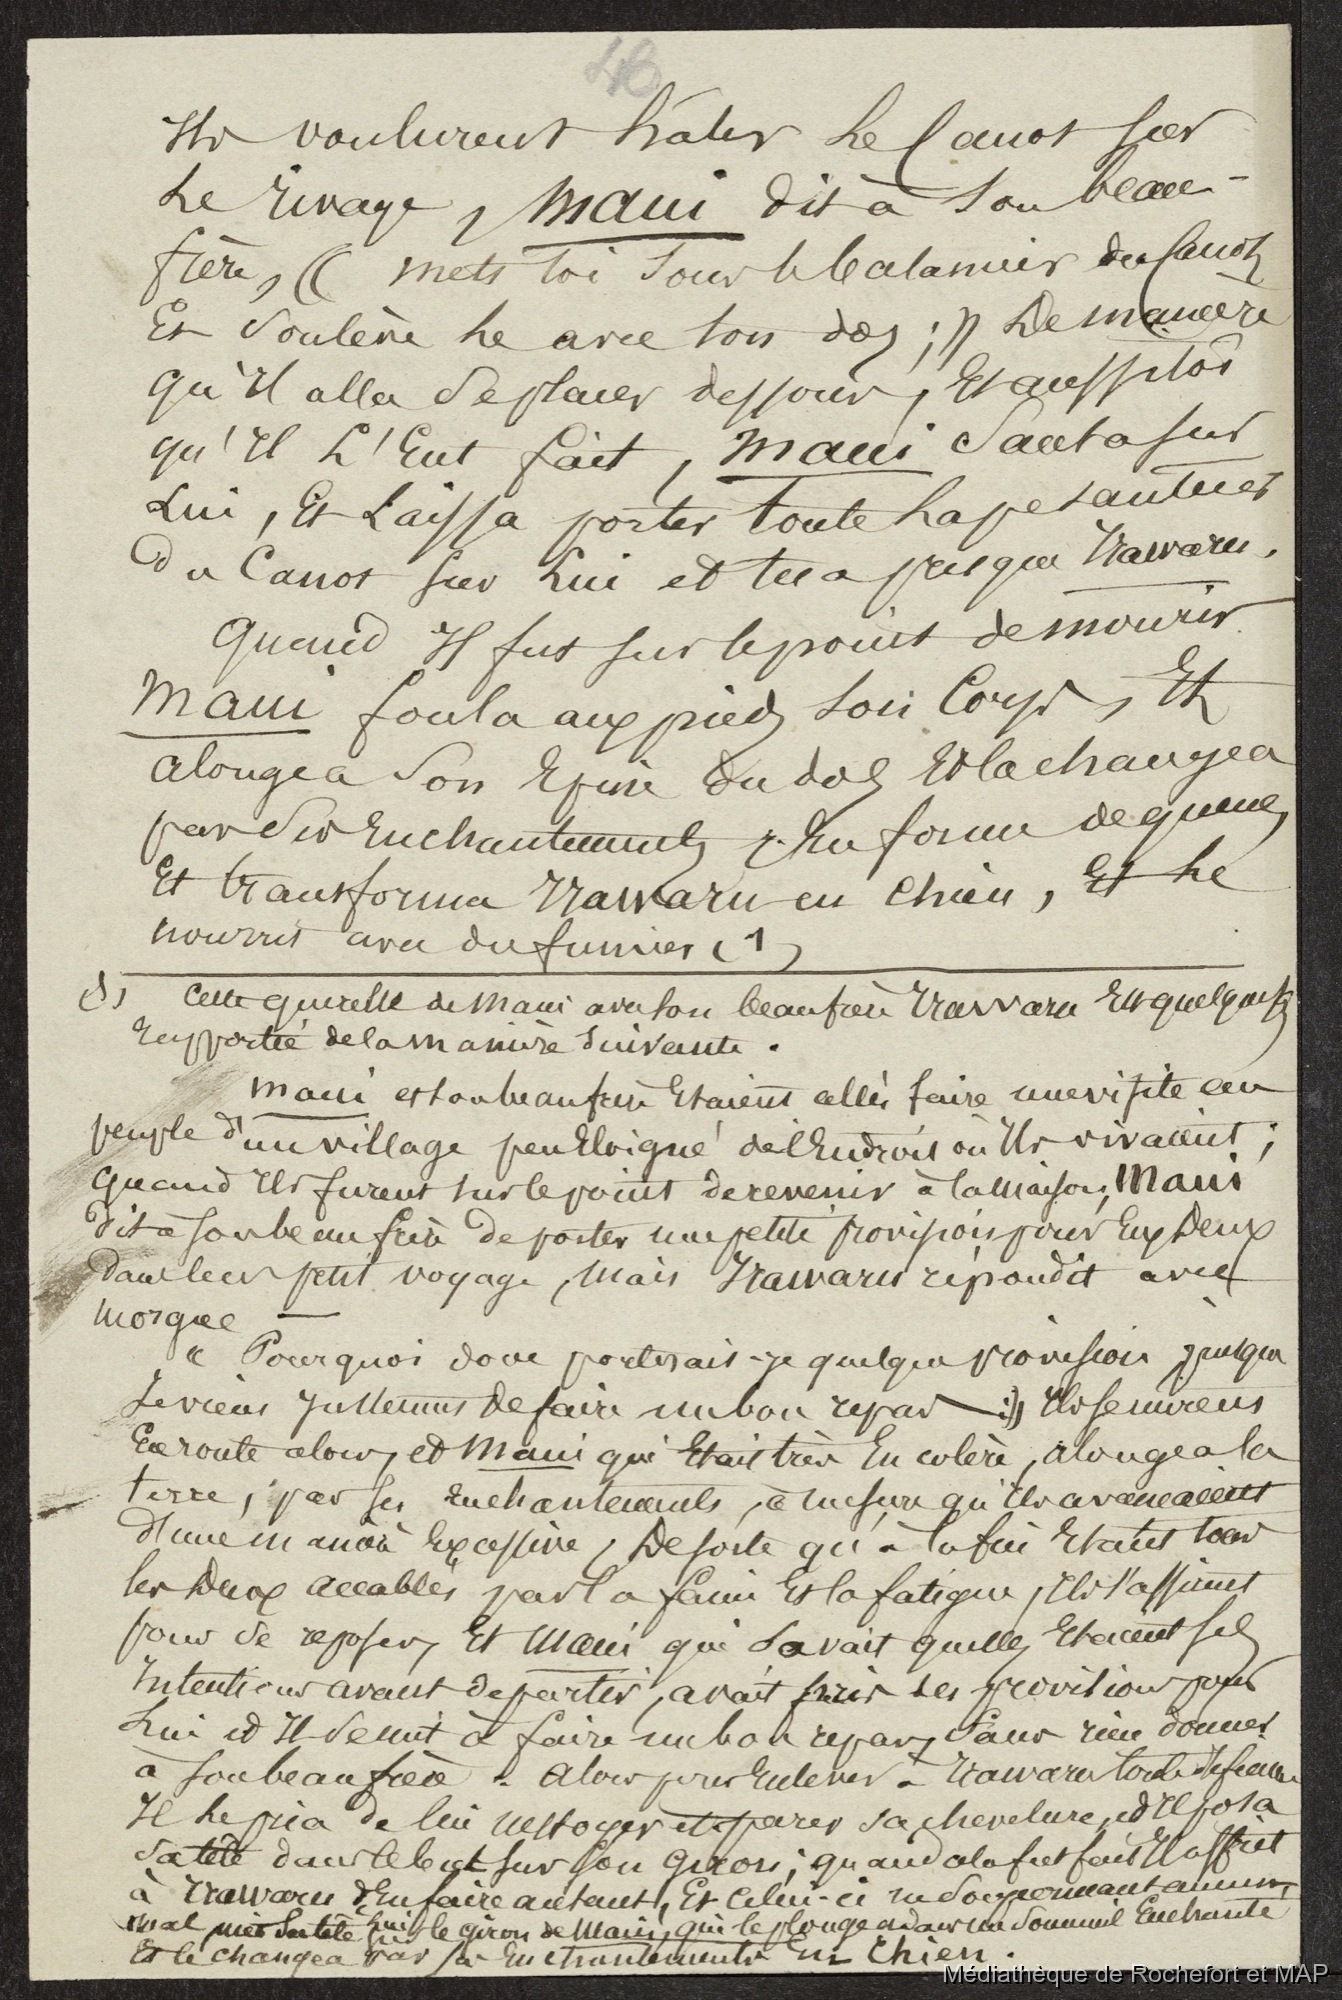 46
Ils voulurent hâler Le Canot sur
Le rivage, Maui dit à son beau-
frère, (( mets toi sous le balancier du Canot
Et soulève le avec ton dos ; )) De manière
qu'Il alla se placer dessous, Et aussitôt
qu'Il L'Eut fait, Maui Sauta sur
Lui, Et Laissa porter toute la pesanteur
Du Canot sur Lui et tua presque Irawaru.
Quand Il fut sur le point de mourir
Maui foula aux pieds son Corps, Et
alongea Son Epine du dos Et la changea
par Ses Enchantements, En forme de queue,
Et transforma Irawaru en chien, Et Le
nourrit avec du fumier (1)
(1) Cette querelle de Maui avec son beau frère Irawaru Est quelquefois
rapportée de la manière suivante.
Maui et son beau frère Etaient allés faire une visite au
peuple d'un village peu Eloigné de l'Endroit où Ils vivaient ;
Quand Ils furent sur le point de revenir à la maison, Maui
dit à son beau frère de porter une petite provision pour Eux Deux
dans leur petit voyage, Mais Irawaru répondit avec
morgue —
« Pourquoi donc porterais-je quelque provision, puisque
Je viens Justement de faire un bon repas —:)) Ils se mirent
En route alors, et Maui qui Etait très En colère, alongea la
terre, par ses Enchantements, à mesure qu'Ils avançaient
d'une manière Excessive, De sorte qu'à la fin Etant tous
les Deux accablés par la faim Et la fatigue, Ils s'assirent
pour se reposer, Et Maui qui Savait quelles Etaient ses
Intentions avant de partir, avait pris des provisions pour
Lui et Il se mit à faire un bon repas, Sans rien donner
à son beau frère. Alors pour Enlever à Irawaru toute défiance
Il Le pria de lui nettoyer et parer sa chevelure, et Il posa
Sa tête dans le but sur son giron ; quand cela fut fait Il offrit
à Irawaru d'En faire autant, Et Celui-ci ne Soupçonnant aucun
mal mit Sa tête sur le giron de Maui, qui le plongea dans un Sommeil Enchanté
Et le changea par ses Enchantements En Chien.
Médiathèque de Rochefort et MAP